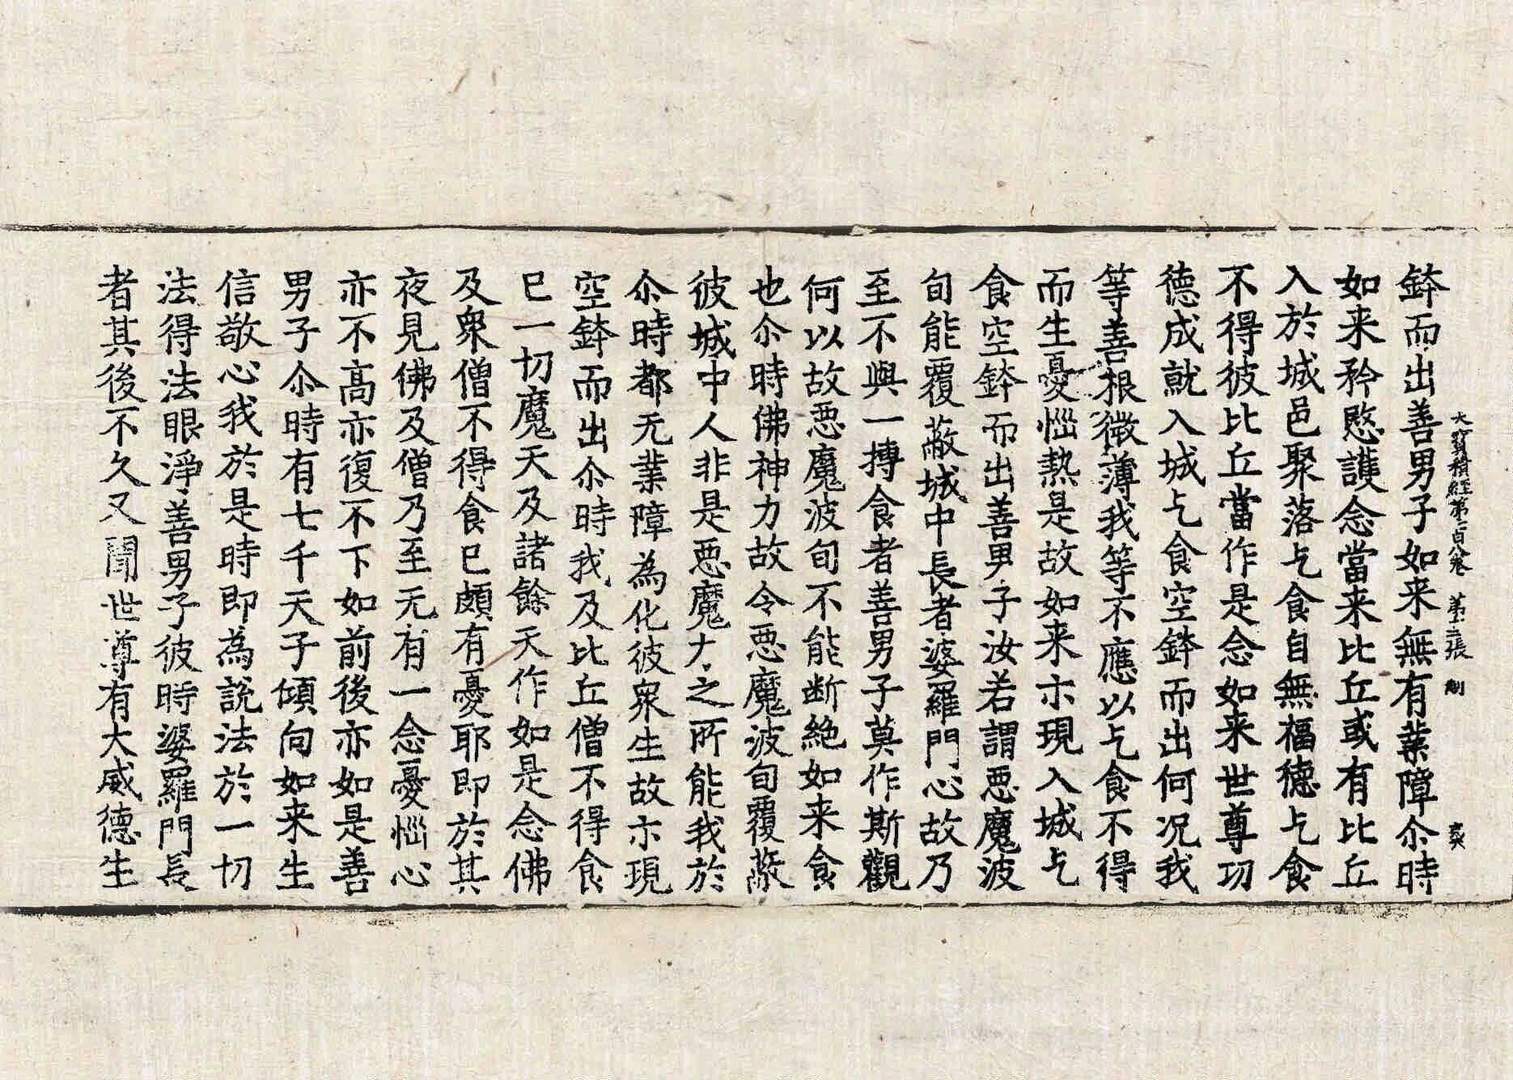 大寶積經第一百八卷 第二張 制 爽
鉢而出善男子如来無有業障尒時
如来矜愍護念當来比丘或有比丘
入於城邑聚落乞食自無福德乞食
不得彼比丘當作是念如来世尊功
德成就入城乞食空鉢而出何况我
等善根微薄我等不應以乞食不得
而生憂惱熱是故如来亦現入城乞
食空鉢而出善男子汝若謂惡魔波
旬能覆蔽城中長者婆羅門心故乃
至不與一摶食者善男子莫作斯觀
何以故惡魔波旬不能断絶如来食
也尒時佛神力故令惡魔波旬覆蔽
彼城中人非是惡魔力之所能我於
尒時都无業障為化彼衆生故亦現
空鉢而出尒時我及比丘僧不得食
已一切魔天及諸餘天作如是念佛
及衆僧不得食已頗有憂耶即於其
夜見佛及僧乃至无有一念憂惱心
亦不高亦復不下如前後亦如是善
男子尒時有七千天子傾向如来生
信敬心我於是時即為說法於一切
法得法眼淨善男子彼時婆羅門長
者其後不久又聞世尊有大威德生